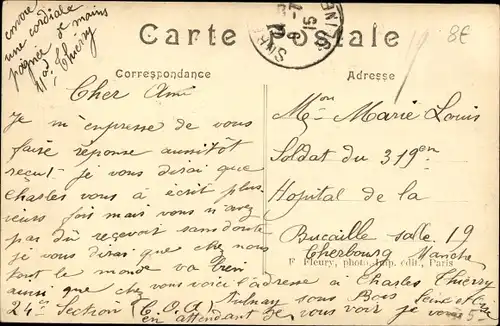 envoie
une cordiale
poignée de mains
Thierry
8€
Carte Postale
Correspondance
Adresse
Cher Ami
Je m'empresse de vous
faire réponse aussitôt
reçu. je vous dirai que
Charles vous à écrit plus
ieurs fois mais vous n'avez
pas dû recevoir sans doute
je vous dirai que chez nous
tout le monde va bien
ainsi que chez vous voici l'adresse à Charles Thierry
24e Section (C.O.A) Aulnay sous Bois Seine et Oise
en attendant de vous voir je vous
Mr Marie Louis
Soldat du 319em
Hopital de la
Bucaille salle 19
Cherbourg Manche
F. Fleury, phot. Imp. édit., Paris